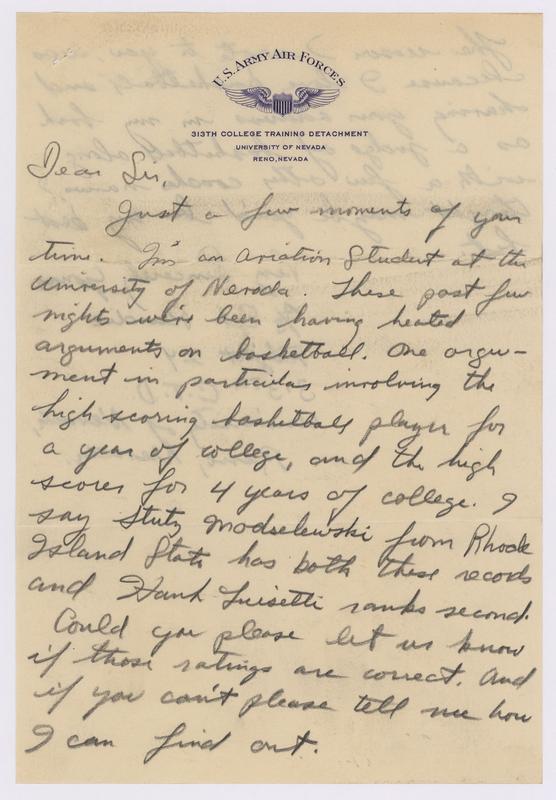 U.S. ARMY AIR FORCES
313TH COLLEGE TRAINING DETACHMENT
UNIVERSITY OF NEVADA
RENO, NEVADA
Dear Sir,
Just a few moments of your
time. I'm an Aviation Student at the
University of Nevada. These past few
nights we've been having heated
arguments on basketball. One argu-
ment in particular involving the
high scoring basketball player for
a year of college, and the high
scorer for 4 years of college. I
say Stutz Modzelewski from Rhode
Island State has both these records
and Hank Luisetti ranks second.
Could you please let us know
if those ratings are correct. And
if you can't please tell me how
I can find out.